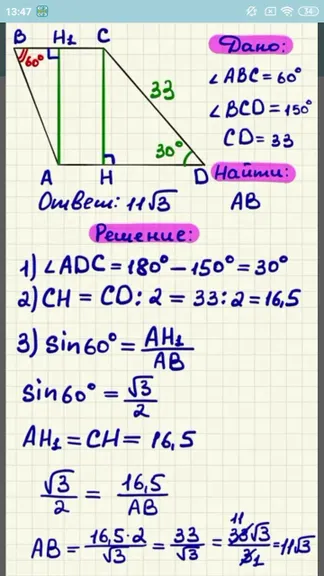 13:47
34
B H₁ C
60°
33
30°
A H D
Дано:
∠ABC = 60°
∠BCD = 150°
CD = 33
Найти:
AB
Ответ: 11√3
Решение:
1) ∠ADC = 180° – 150° = 30°
2) CH = CD : 2 = 33 : 2 = 16,5
3) sin60° = AH₁/AB
sin60° = √3/2
AH₁ = CH = 16,5
√3/2 = 16,5/AB
AB = 16,5·2/√3 = 33/√3 = 11 33√3/3 1 = 11√3